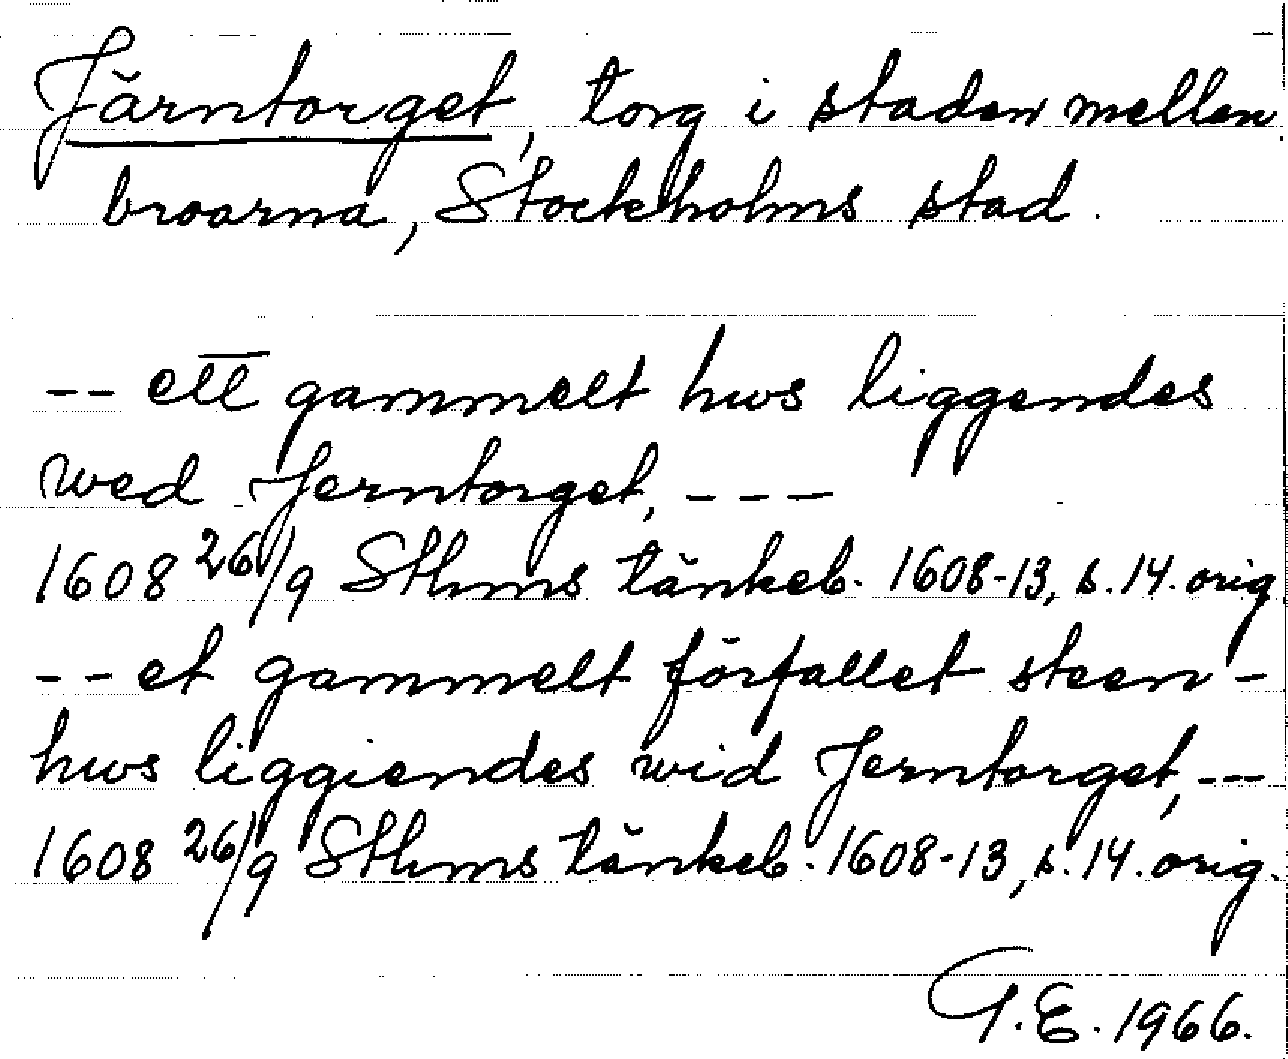 Järntorget, torg i staden mellan
broarna, Stockholms stad.
-- ett gammelt hws liggendes
wed Jerntorget, ---
1608 26/9 Sthms tänkeb. 1608-13, s. 14. orig
-- et gammelt förfallet steen-
hws liggiendes wid Jerntorget, --
1608 26/9 Sthms tänkeb. 1608-13, s. 14. orig.
G.E. 1966.